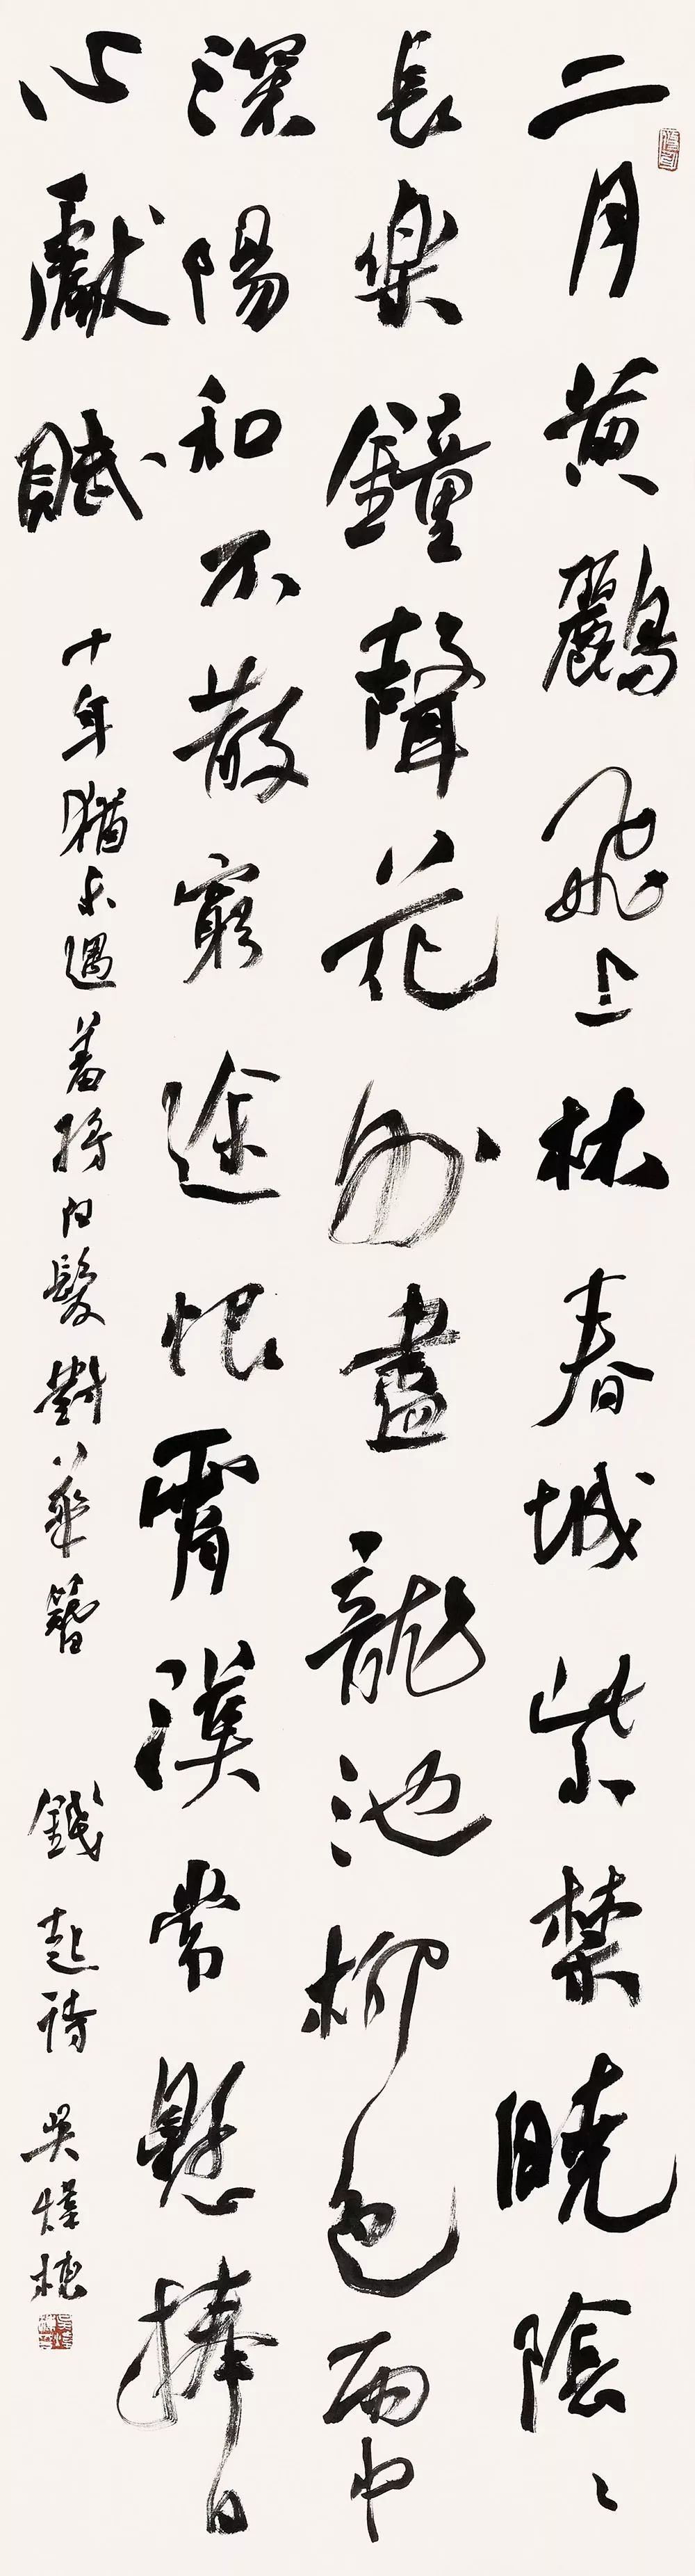 二月黄鸝飛上林春城紫禁曉陰〻
長楽鐘聲花外盡龍池柳色雨中
深陽和不散窮途恨霄漢常懸捧日
心獻賦十年猶未遇羞將白髮對華簪 錢起詩 吳